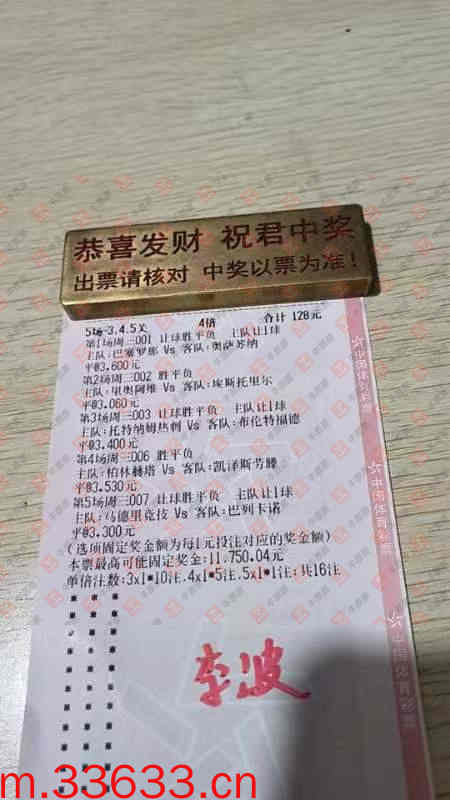 恭喜发财 祝君中奖
出票请核对 中奖以票为准！
5场-3.4.5关 4倍 合计 128元
第1场周三001 让球胜平负 主队让1球
主队:巴塞罗那 Vs 客队:奥萨苏纳
平@3.600元
第2场周三002 胜平负
主队:里奥阿维 Vs 客队:埃斯托里尔
平@3.060元
第3场周三003 让球胜平负 主队让1球
主队:托特纳姆热刺 Vs 客队:布伦特福德
平@3.400元
第4场周三006 胜平负
主队:柏林赫塔 Vs 客队:凯泽斯劳滕
平@3.530元
第5场周三007 让球胜平负 主队让1球
主队:马德里竞技 Vs 客队:巴列卡诺
平@3.300元
(选项固定奖金额为每1元投注对应的奖金额)
本票最高可能固定奖金:11,750.04元
单倍注数:3x1*10注.4x1*5注.5x1*1注;共16注
中国体育彩票
中国体育彩票
中国体育彩票
李波
m.33633.cn